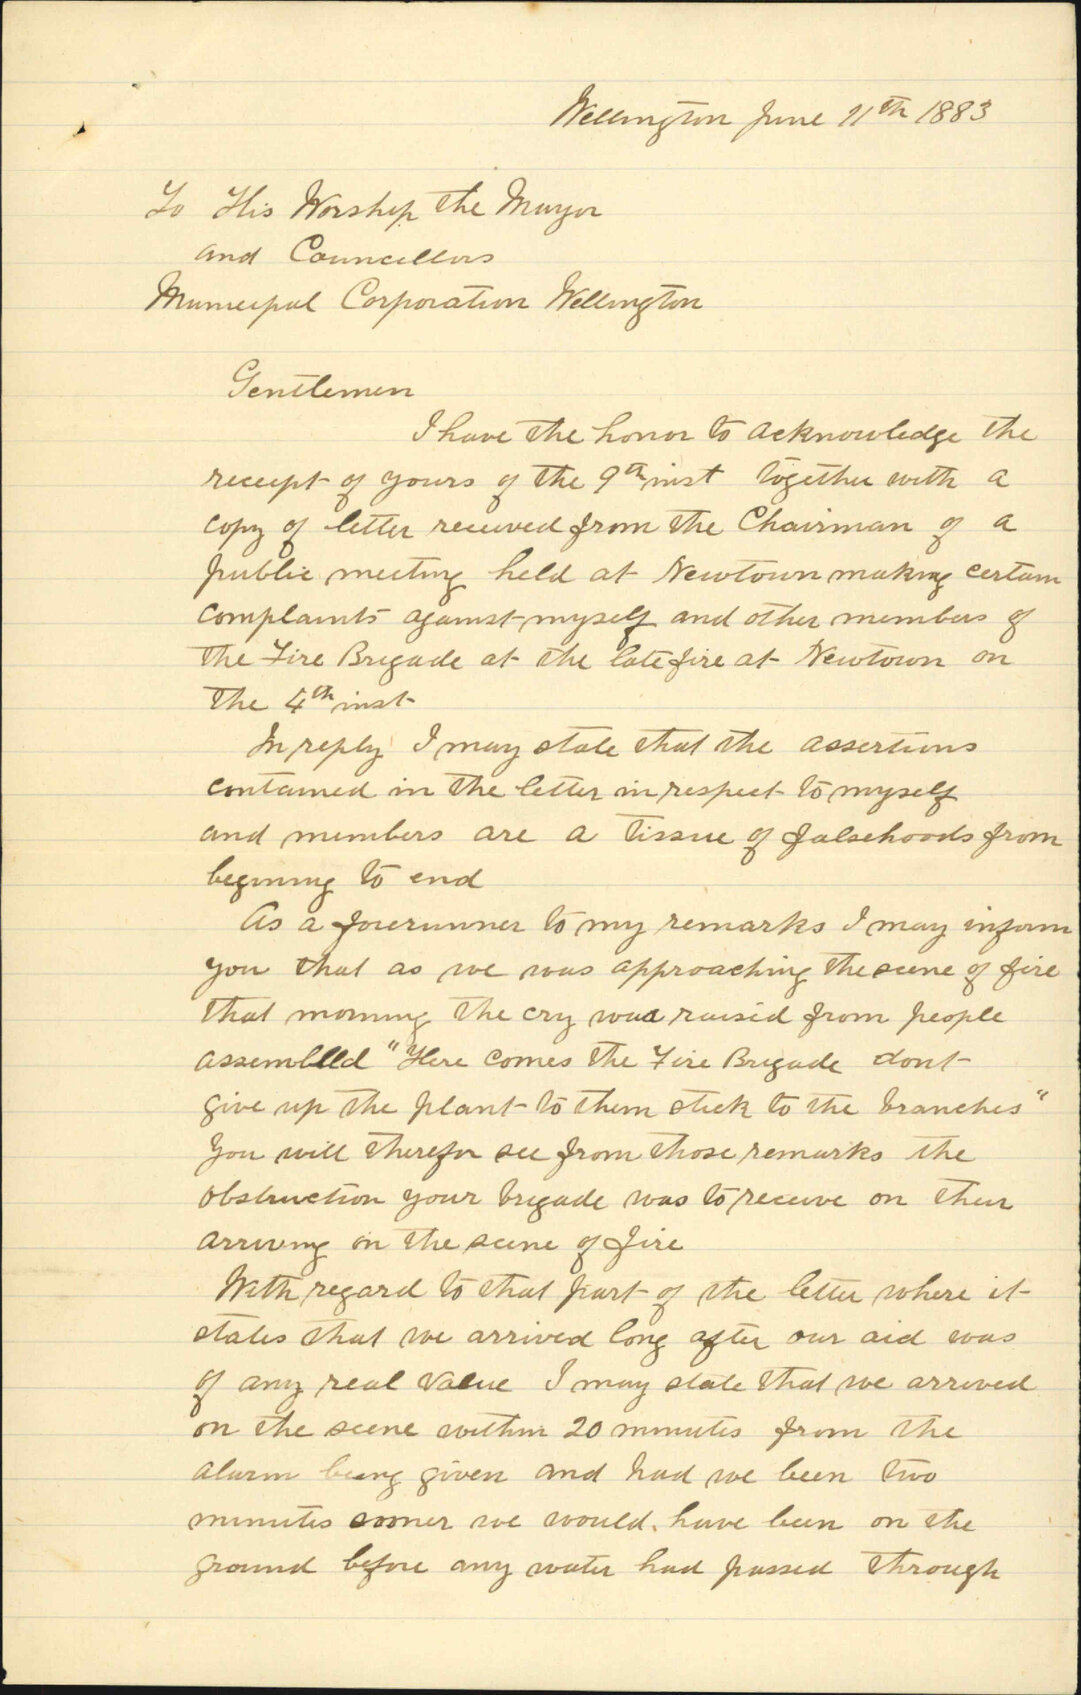 Wellington June 11th 1883
To His Worship the Mayor
and Councillors
Municipal Corporation Wellington
Gentlemen
I have the honor to acknowledge the
receipt of yours of the 9th inst together with a
copy of letter received from the Chairman of a
public meeting held at Newtown making certain
complaints against myself and other members of
the Fire Brigade at the late fire at Newtown on
the 4th inst
In reply I may state that the assertions
contained in the letter in respect to myself
and members are a tissue of falsehoods from
begining to end
As a forerunner to my remarks I may inform
you that as we was approaching the scene of fire
that morning the cry was raised from people
assembled "Here comes the Fire Brigade dont
give up the plant to them stick to the branches"
You will therefor see from those remarks the
obstruction your brigade was to receive on their
arriving on the scene of fire
With regard to that part of the letter where it
states that we arrived long after our aid was
of any real value I may state that we arrived
on the scene within 20 minutes from the
alarm being given and had we been two
minutes sooner we would have been on the
ground before any water had passed through